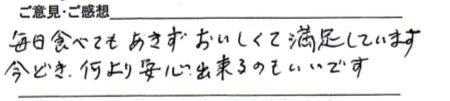 ご意見・ご感想
毎日食べても あきず おいしくて 満足しています
今どき、何より安心出来るのもいいです